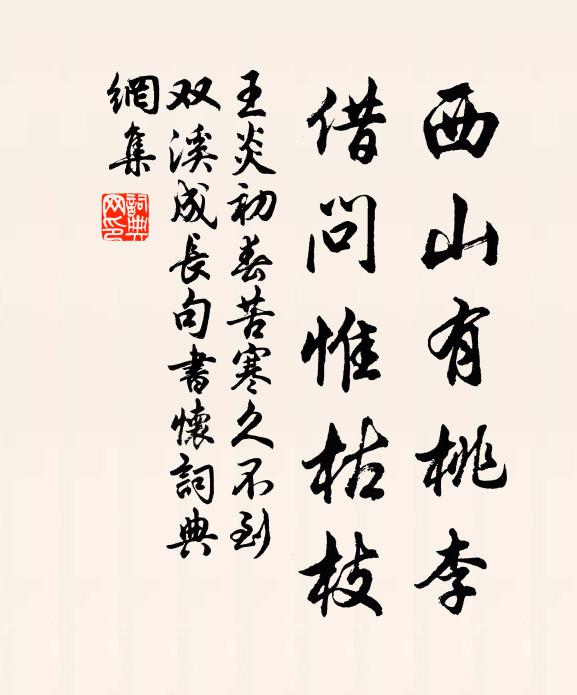 西山有桃李
借问惟枯枝
王炎初春苦寒久不到
双溪成長句書懷詞典
網集
詞典
网印